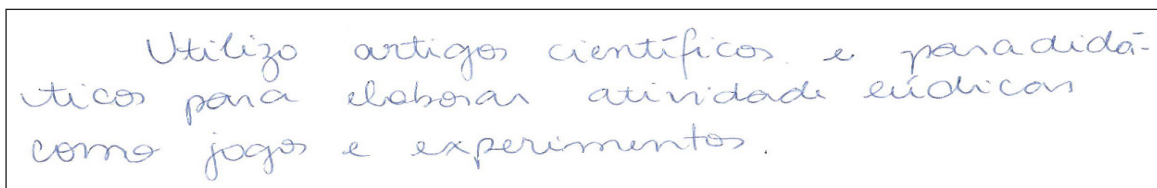 Utilizo artigos científicos e paradidá-
ticos para elaborar atividade lúdicas
como jogos e experimentos.